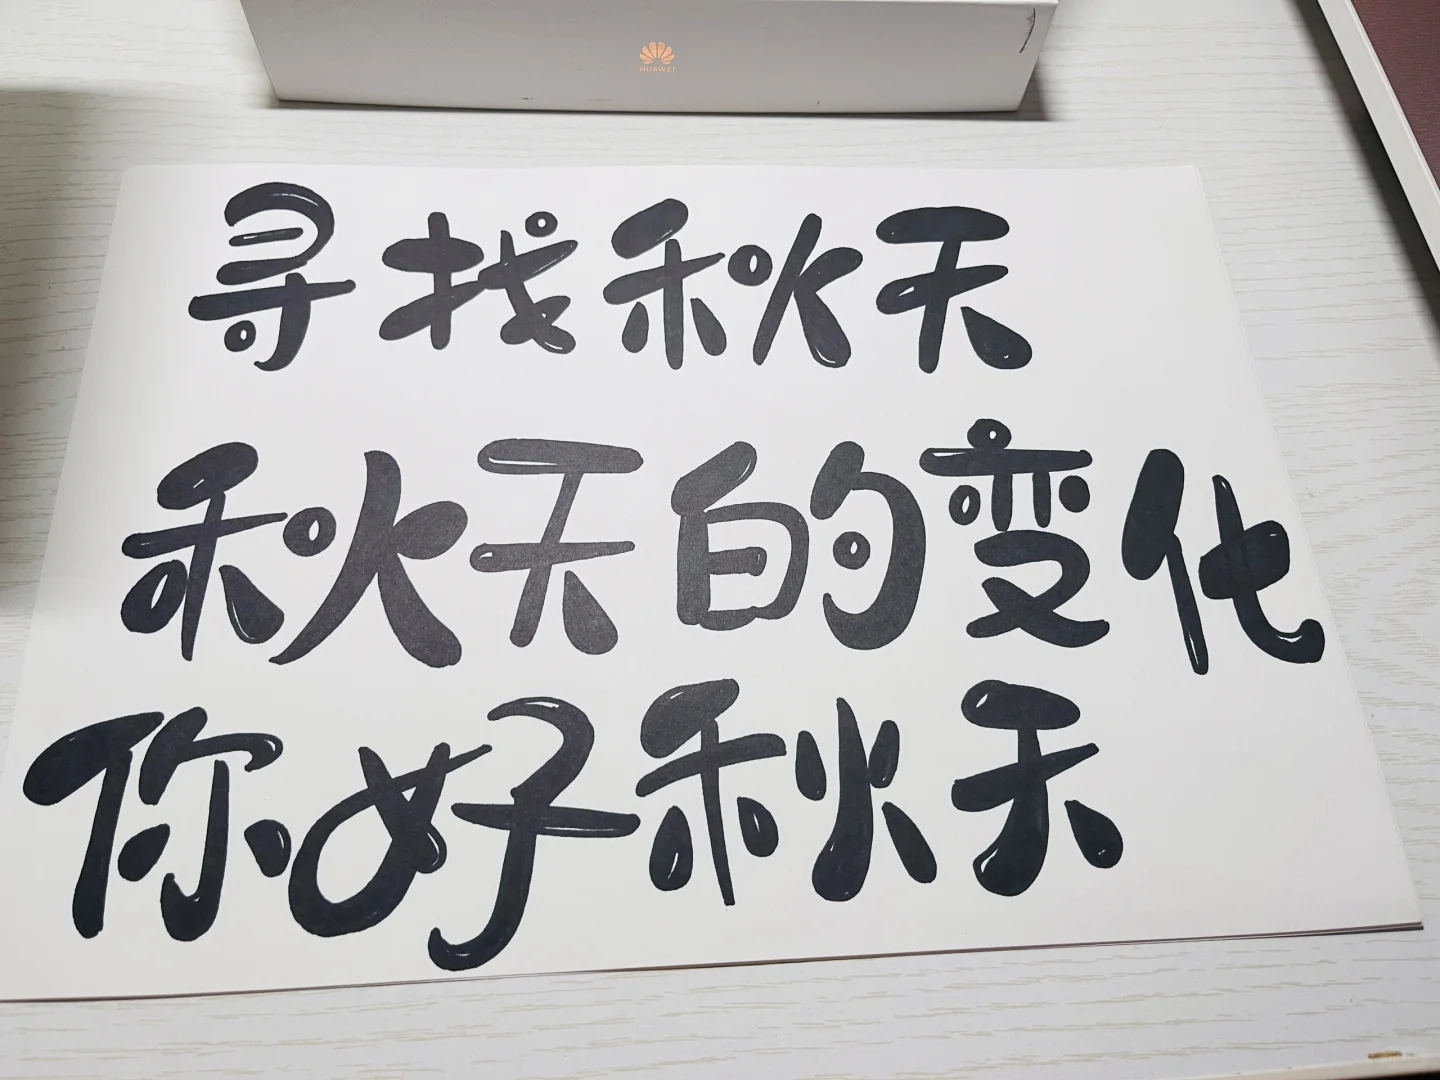 HUAWEI
寻找秋天
秋天的变化
你好秋天